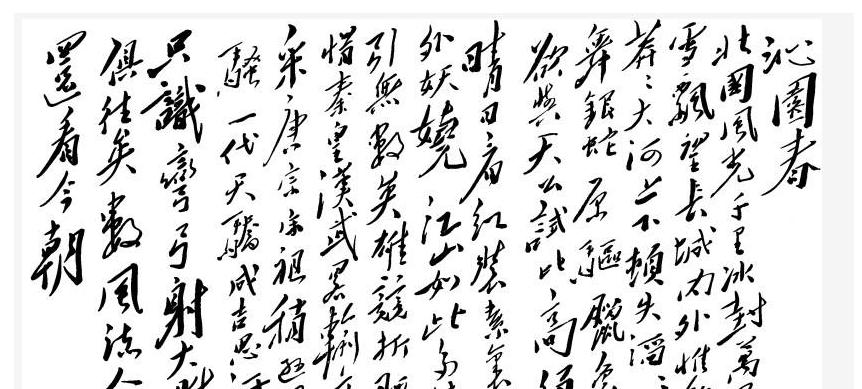 沁園春
北國風光千里冰封萬
雪飄望長城內外惟
莽〻大河上下頓失滔
舞銀蛇原驅臘象
欲與天公試比高須
晴日看紅裝素裹
外妖嬈江山如此多
引無數英雄競折腰
惜秦皇漢武略輸
采唐宗宋祖稍遜
騷一代天驕成吉思汗
只識彎弓射大
俱往矣數風流人
還看今朝